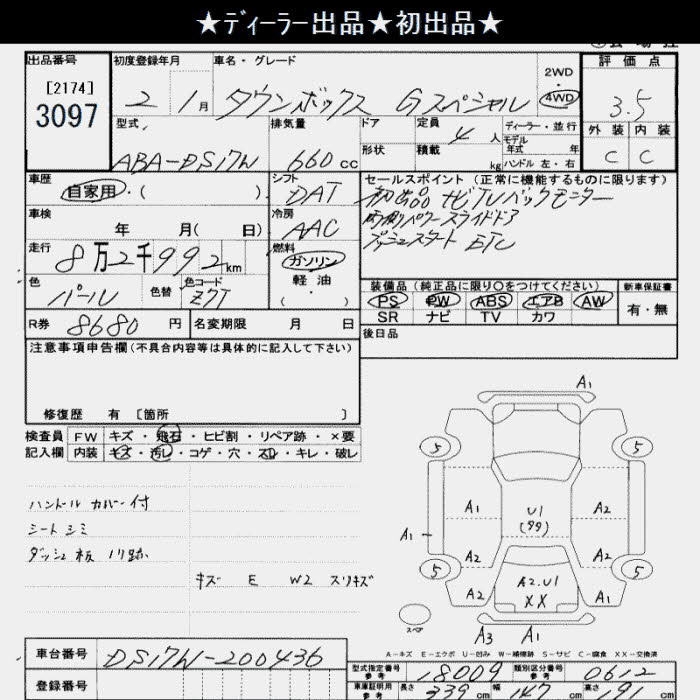 ★ディーラー出品★初出品★
出品番号
[2174]
3097
初度登録年月
2 1月
車名・グレード
タウンボックス Gスペシャル
2WD
4WD
評価点
3.5
外装 内装
C C
型式
ABA-DS17W
排気量
660cc
ドア
形状
定員 4人
積載 kg
ディーラー・並行
モデル年式 年
ハンドル 左・右
車歴
自家用・( )
シフト
DAT
セールスポイント (正常に機能するものに限ります)
初出品 ナビTVバックモニター
両側パワースライドドア
プッシュスタート ETC
車検
年 月( 日)
冷房
AAC
走行
8万2千992km
燃料
ガソリン
軽油
( ・ )
色
パール
色替
色コード
Z7T
装備品 (純正品に限り○をつけてください)
PS PW ABS エアB AW
SR ナビ TV カワ
新車保証書
有・無
R券 8680円
名変期限 月 日
後日品
注意事項申告欄 (不具合内容等は具体的に記入して下さい)
修復歴 有 [箇所 ]
検査員
記入欄
FW キズ・飛石・ヒビ割・リペア跡・×要
内装 キズ・汚レ・コゲ・穴・スレ・キレ・破レ
ハンドルカバー付
シートシミ
ダッシュ板 ノリ跡
キズ E W2 スリキズ
A1
5 5
A1 A1 U1 (99) A2
A2 A2
5 5
A2 A2.U1 A2
XX
スペア
A3 A1
A-キズ E-エクボ U-凹み W-補修跡 S-サビ C-腐食 XX-交換済
車台番号 DS17W-200436
登録番号
型式指定番号 参考 18009
類別区分番号 参考 0612
車庫証明用 参考 長さ 339cm 幅 147cm 高さ 191cm